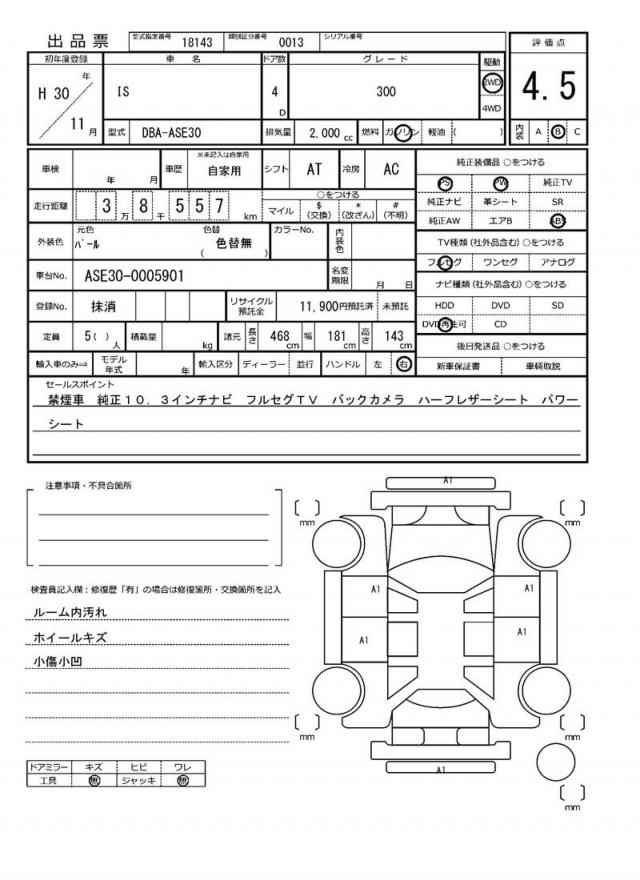 出品票 型式指定番号 18143 類別区分番号 0013 シリアル番号
評価点
4.5
初年度登録 車名 ドア数 グレード 駆動
H 30 年 11 月 IS 4 D 300 2WD 4WD
型式 DBA-ASE30 排気量 2,000 cc 燃料 ガソリン 軽油 ( ) 内装 A B C
車検 年 月 車歴 ※未記入は自家用 自家用 シフト AT 冷房 AC
走行距離 3 万 8 千 5 5 7 km ○をつける マイル $ (交換) * (改ざん) # (不明)
外装色 元色 パール 色替 ( 色替無 ) カラーNo. 内装色
車台No. ASE30-0005901 名変期限 月 日
登録No. 抹消 リサイクル預託金 11,900円預託済 未預託
定員 5 ( ) 人 積載量 kg 諸元 長さ 468 cm 幅 181 cm 高さ 143 cm
輸入車のみ⇒ モデル年式 年 輸入区分 ディーラー 並行 ハンドル 左 右
純正装備品 ○をつける
PS PW 純正TV
純正ナビ 革シート SR
純正AW エアB ABS
TV種類 (社外品含む) ○をつける
フルセグ ワンセグ アナログ
ナビ種類 (社外品含む) ○をつける
HDD DVD SD
DVD再生可 CD
後日発送品 ○をつける
新車保証書 車輌取説
セールスポイント
禁煙車 純正10.3インチナビ フルセグTV バックカメラ ハーフレザーシート パワー
シート
注意事項・不具合箇所
検査員記入欄:修復歴「有」の場合は修復箇所・交換箇所を記入
ルーム内汚れ
ホイールキズ
小傷小凹
ドアミラー キズ ヒビ ワレ
工具 無 ジャッキ 無
A1
mm mm
A1 A1
A1 A1
mm mm
A1
mm